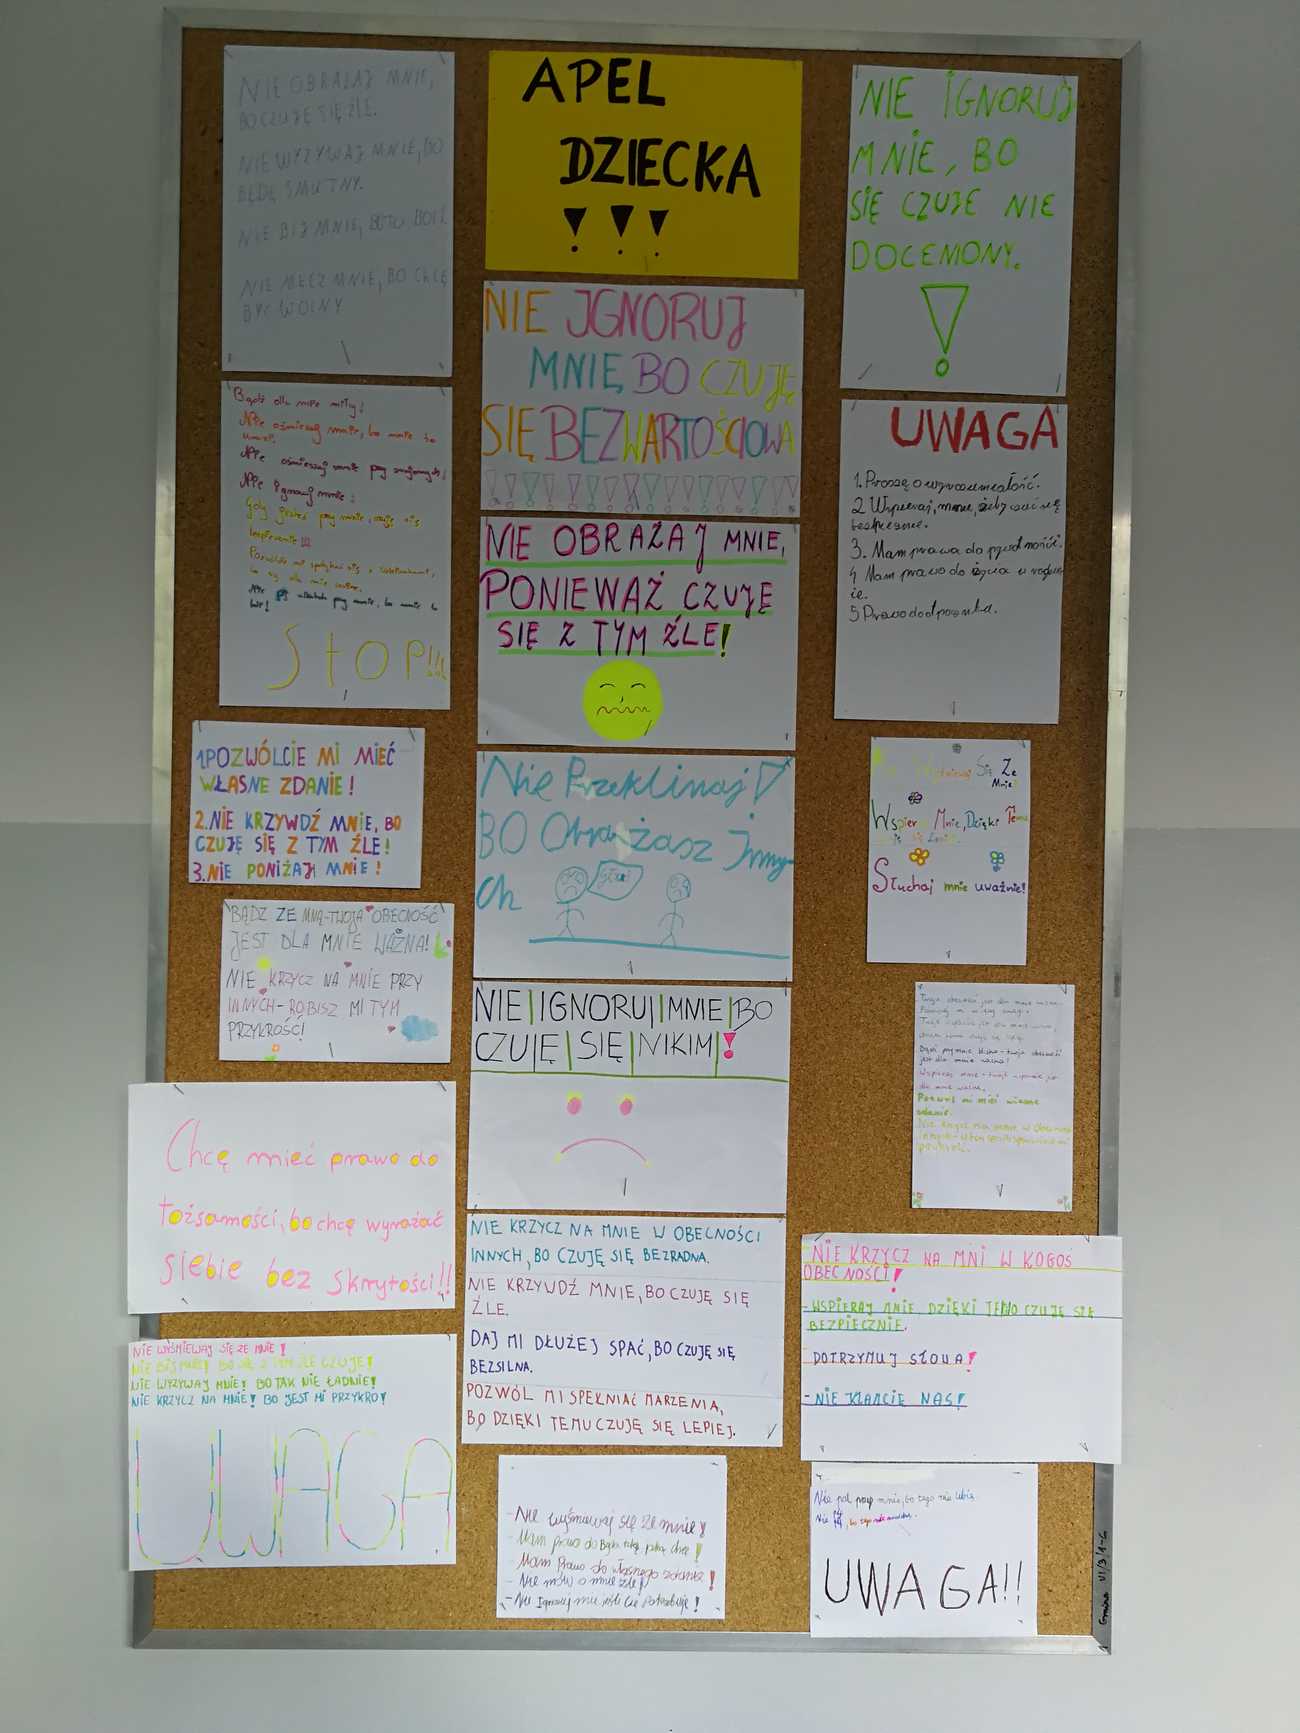 NIE OBRAŻAJ MNIE,
BO CZUJĘ SIĘ ŹLE.
NIE WYZYWAJ MNIE, BO
BĘDĘ SMUTNY.
NIE BIJ MNIE, BO TO BOLI.
NIE MĘCZ MNIE, BO CHCĘ
BYĆ WOLNY
APEL
DZIECKA
!!!
NIE IGNORUJ
MNIE, BO
SIĘ CZUJE NIE
DOCENIONY.
!
NIE IGNORUJ
MNIE BO CZUJĘ
SIĘ BEZWARTOŚCIOWA
Bądź dla mnie miły!
Nie ignoruj mnie!
STOP!!!
UWAGA
1. Proszę o wyrozumiałość.
2 Wspieraj, mnie, żeby czuć się
bezpiecznie.
3. Mam prawo do prywatności.
4 Mam prawo do życia w rodzi-
ie.
5 Prawo do odpoczynku.
NIE OBRAŻAJ MNIE,
PONIEWAŻ CZUJĘ
SIĘ Z TYM ŹLE!
1POZWÓLCIE MI MIEĆ
WŁASNE ZDANIE!
2.NIE KRZYWDŹ MNIE, BO
CZUJĘ SIĘ Z TYM ŹLE!
3.NIE PONIŻAJ MNIE!
Nie Przeklinaj!
BO Obrażasz inny-
ch
Wyśmiewaj Się Ze
Mnie!
Wspieraj Mnie, Dzięki Temu
Słuchaj mnie uważnie!
BĄDZ ZE MNĄ-TWOJA OBECNOŚĆ
JEST DLA MNIE WAŻNA!
NIE KRZYCZ NA MNIE PRZY
INNYCH-ROBISZ MI TYM
PRZYKROŚĆ!
NIE IGNORUJ MNIE BO
CZUJĘ SIĘ NIKIM!
Twoja obecność jest dla mnie ważna.
Bądź przy mnie blisko - twoja obecność
jest dla mnie ważna!
Pozwól mi mieć własne
zdanie.
Chcę mieć prawo do
tożsamości, bo chcę wyrażać
siebie bez skrytości!!
NIE KRZYCZ NA MNIE W OBECNOŚCI
INNYCH, BO CZUJĘ SIĘ BEZRADNA.
NIE KRZYWDŹ MNIE, BO CZUJĘ SIĘ
ŹLE.
DAJ MI DŁUŻEJ SPAĆ, BO CZUJĘ SIĘ
BEZSILNA.
POZWÓL MI SPEŁNIAĆ MARZENIA,
BO DZIĘKI TEMU CZUJĘ SIĘ LEPIEJ.
-NIE KRZYCZ NA MNI W KOGOŚ
OBECNOŚCI!
-WSPIERAJ MNIE, DZIĘKI TEMU CZUJĘ SIĘ
BEZPIECZNIE.
DOTRZYMUJ SŁOWA!
-NIE KŁAMCIE NAS!
NIE WYŚMIEWAJ SIĘ ZE MNIE!
NIE BIJ MNIE! BO SIĘ Z TYM ŹLE CZUJE!
NIE WYZYWAJ MNIE! BO TAK NIE ŁADNIE!
NIE KRZYCZ NA MNIE! BO JEST MI PRZYKRO!
UWAGA
- Nie wyśmiewaj się ze mnie!
- Mam prawo do bycia taką, jaką chcę!
- Mam Prawo do własnego zdania!
- Nie mów o mnie źle!
- Nie Ignoruj mnie jeśli Cię Potrzebuję!
Nie pal przy mnie, bo tego nie lubię.
UWAGA!!